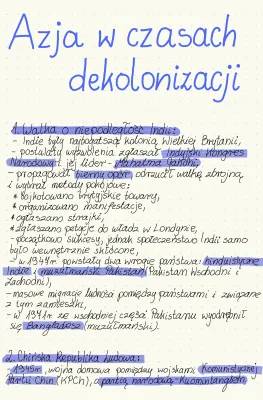 Azja w czasach
dekolonizacji
1. Walka o niepodległość Indii:
- Indie były najbogatszą kolonią Wielkiej Brytanii,
- postulaty wyzwolenia zgłaszał Indyjski Kongres
Narodowy i jej lider - Mahatma Gandhi,
- propagował bierny opór, odrzucił walkę zbrojną
i wybrał metody pokojowe:
* bojkotowano brytyjskie towary,
* organizowano manifestacje,
* ogłaszano strajki,
* zgłaszano petycje do władz w Londynie,
- początkowo sukcesy, jednak społeczeństwo Indii samo
było wewnętrznie skłócone,
- w 1947r. powstały dwa wrogie państwa: hinduistyczne
Indie i muzułmański Pakistan (Pakistan Wschodni i
Zachodni),
- masowe migracje ludności pomiędzy państwami i związane
z tym zamieszki,
- w 1971r. ze wschodniej części Pakistanu wyodrębnił
się Bangladesz (muzułmański).
2. Chińska Republika Ludowa:
- 1945r., wojna domowa pomiędzy wojskami Komunistycznej
Partii Chin (KPCh), a partią narodową - Kuomintangiem